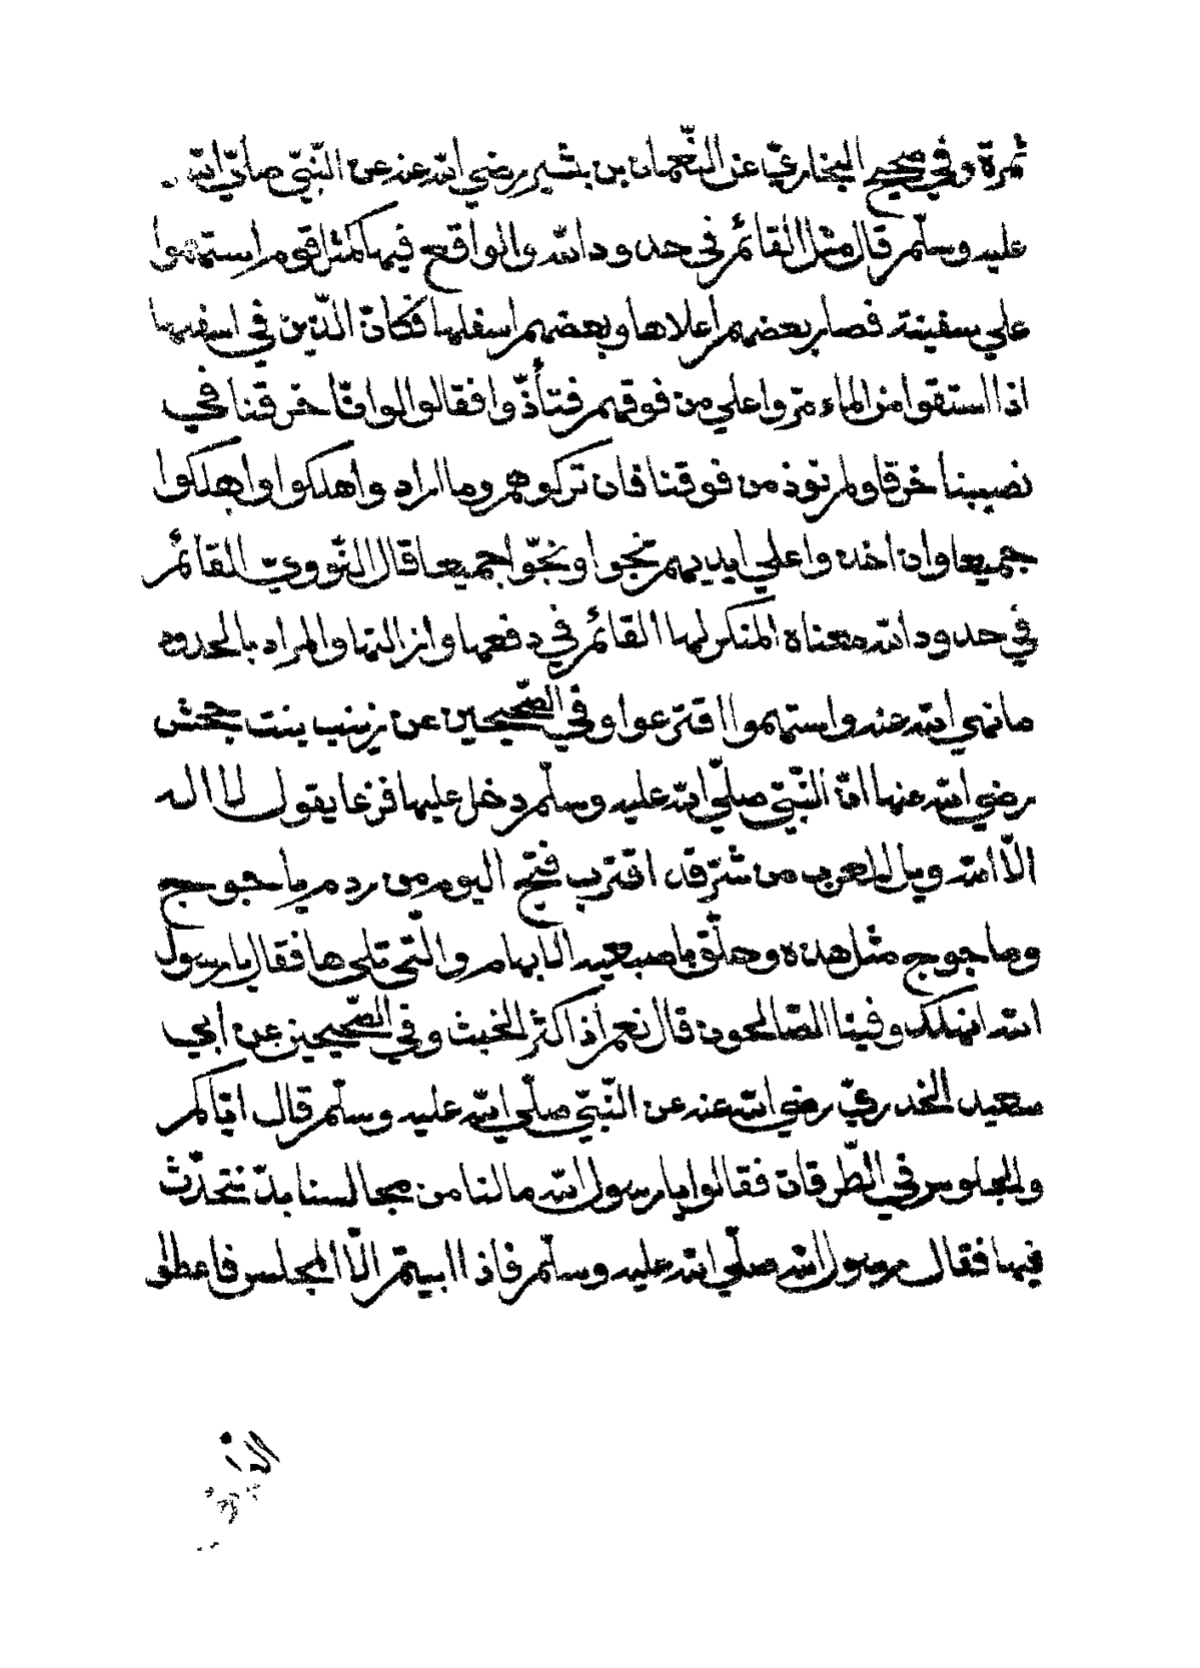 ثمرة وفي صحيح البخاريّ عن النّعمان بن بشير رضي الله عنه عن النّبيّ صلّي الله
عليه وسلّم قال مثل القائم في حدود الله والواقع فيها كمثل قوم استهموا
علي سفينة فصار بعضهم أعلاها وبعضهم اسفلها فكان الّذين في اسفلها
اذا استقوا من الماء مرّوا علي من فوقهم فتأذّوا فقالوا لو انّا خرقنا في
نصيبنا خرقا ولم نوذ من فوقنا فان تركوهم وما اراد واهلكوا واهلكوا
جميعا وان اخذ وا علي ايديهم نجوا ونجّوا جميعا قال النّوويّ القائم
في حدود الله معناه المنكر لها القائم في دفعها وازالتها والمراد بالحدود
ما نهي الله عنه واستهموا اقترعوا وفي الصّحيحين عن زينب بنت جحش
رضي الله عنها انّ النّبيّ صلّي الله عليه وسلّم دخل عليها فزعا يقول لا اله
الّا الله ويل للعرب من شرّ قد اقترب فتح اليوم من ردم ياجوج
وماجوج مثل هذه وحلّق باصبعيه الابهام والّتي تلي ها فقال يا رسول
الله انهلك وفينا الصّالحون قال نعم أذا كثر الخبث وفي الصّحيحين عن ابي
سعيد الخدريّ رضي الله عنه عن النّبيّ صلّي الله عليه وسلّم قال ايّاكم
والجلوس في الطّرقات فقالوا يا رسول الله مالنا من مجالسنا بدّ نتحدّث
فيها فقال رسول الله صلّي الله عليه وسلّم فاذا ابيتم الّا المجلس فاعطوا